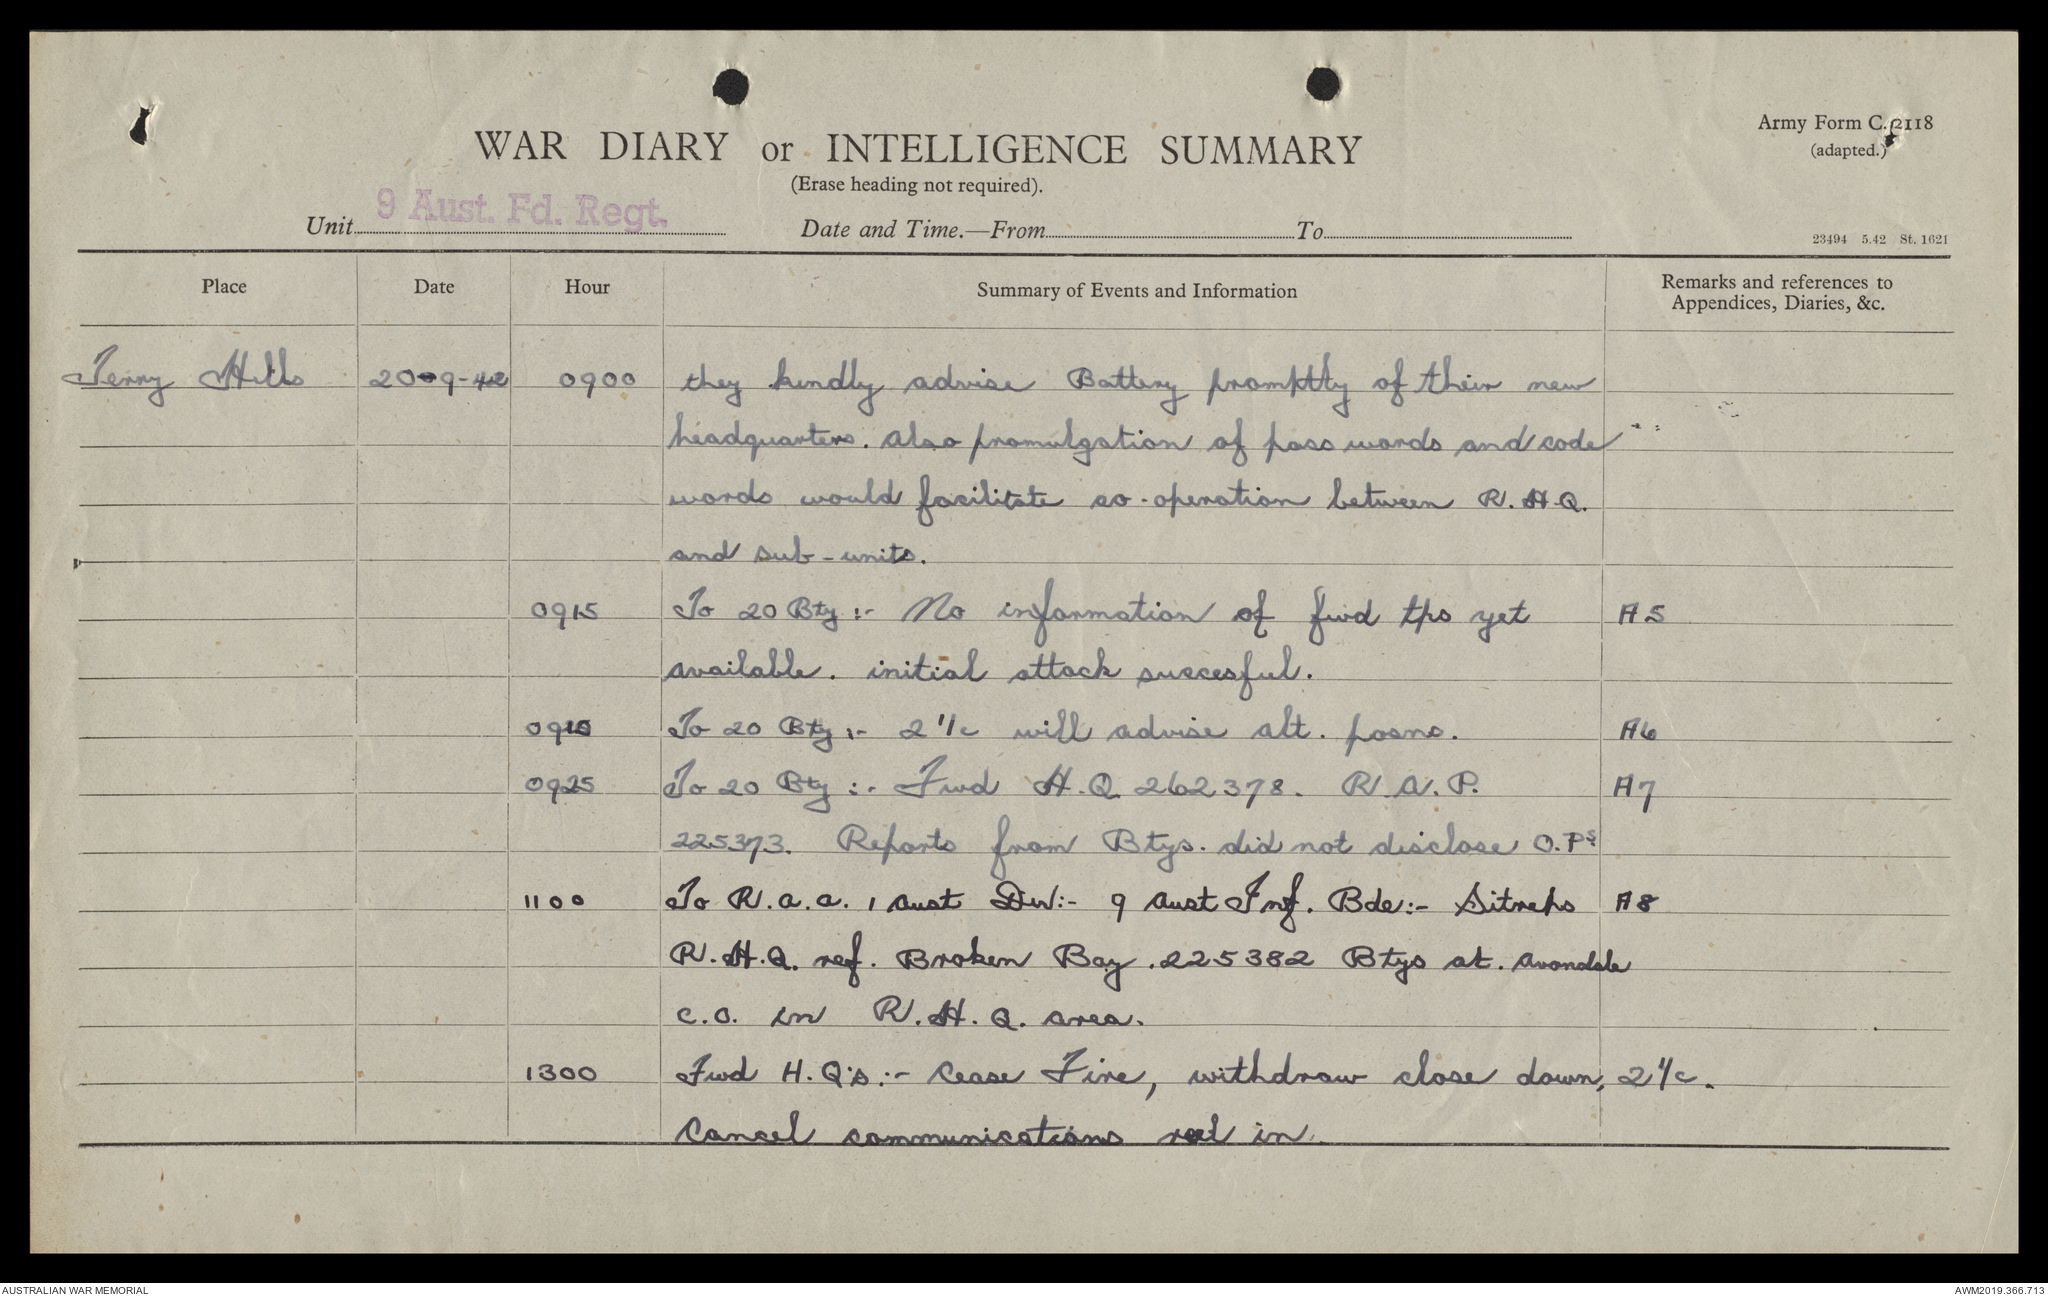 Army Form C. 2118
(adapted.)
WAR DIARY or INTELLIGENCE SUMMARY
(Erase heading not required).
Unit 9 Aust. Fd. Regt. Date and Time.—From To
23494 5.42 St. 1621
Place Date Hour Summary of Events and Information Remarks and references to Appendices, Diaries, &c.
Terry Hills 20-9-42 0900 they kindly advise Battery promptly of their new
headquarters. also promulgation of pass words and code
words would facilitate co-operation between R.H.Q.
and sub-units.
0915 To 20 Bty :- No information of fwd tps yet A5
available. initial attack succesful.
To 20 Bty :- 2 1/c will advise alt. posns. A6
0925 To 20 Bty :- Fwd H.Q. 262378. R.A.P. A7
225373. Reports from Btys. did not disclose O.Ps
1100 To R.A.A. 1 Aust Div:- 9 Aust Inf. Bde:- Sitreps A8
R.H.Q. ref. Broken Bay .225382 Btys at. Avondale
C.O. in R.H.Q. area.
1300 Fwd H.Q's :- Cease Fire, withdraw close down, 2 1/c.
Cancel communications reel in.
AUSTRALIAN WAR MEMORIAL
AWM2019.366.713